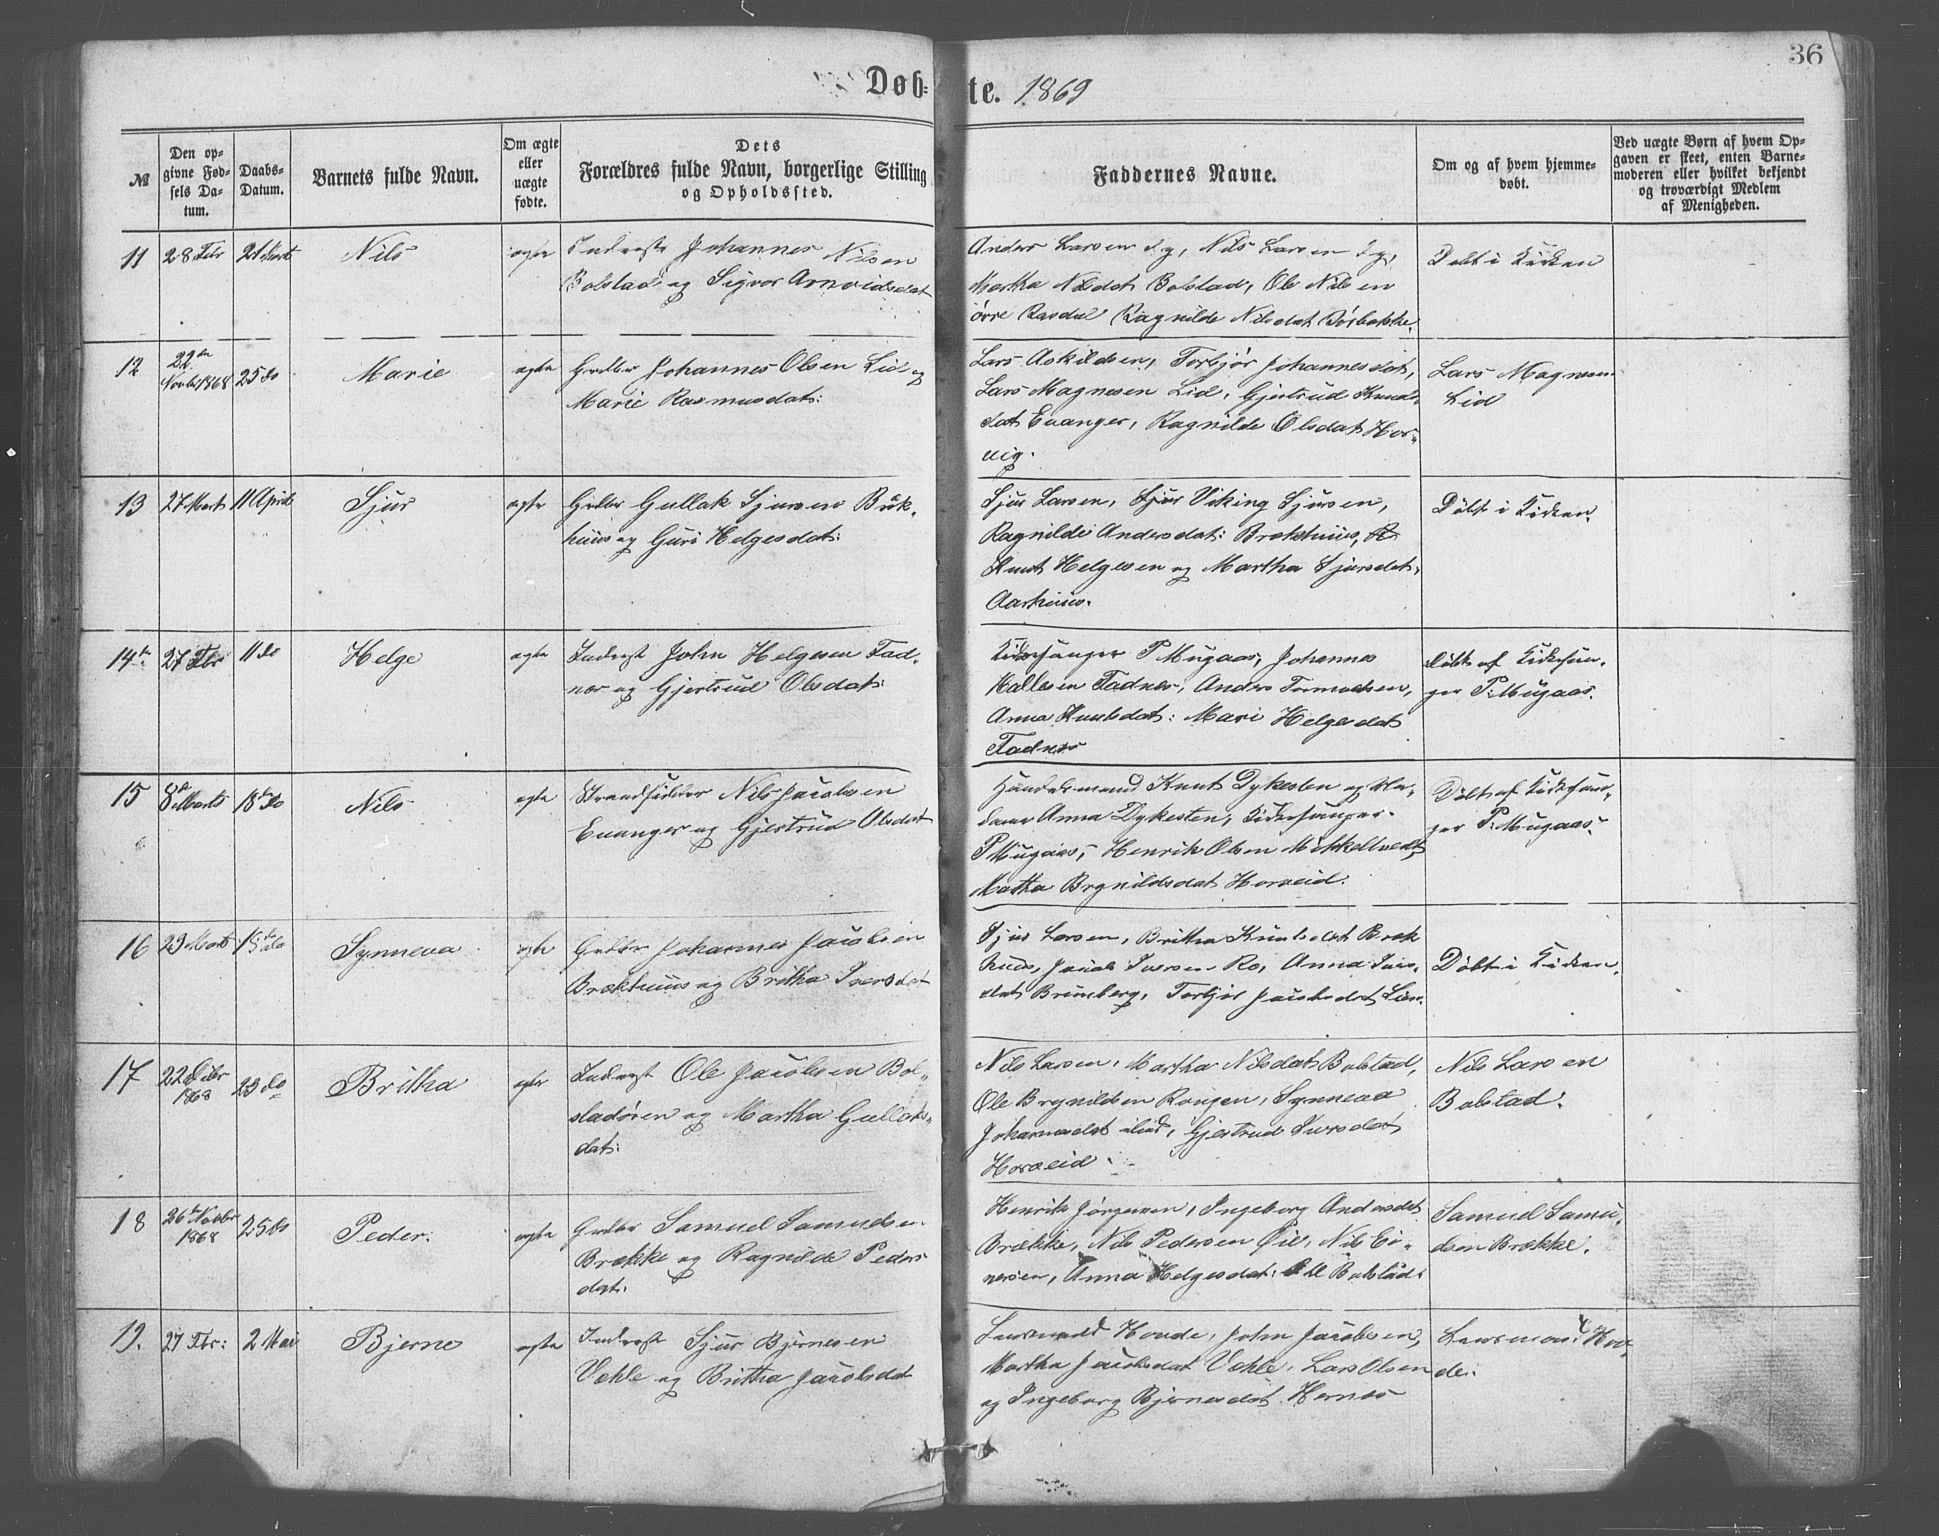 36
Døb= te. 1869
№
Den op=
givne Fød=
sels Da=
tum.
Daabs=
Datum.
Barnets fulde Navn.
Om ægte
eller
uægte
fødte.
Dets
Forældres fulde Navn, borgerlige Stilling
og Opholdssted.
Faddernes Navne.
Om og af hvem hjemme=
døbt.
Ved uægte Børn af hvem Op=
gaven er skeet, enten Barne=
moderen eller hvilket bekjendt
og troværdigt Medlem
af Menigheden.
11
28 Febr
21 Marts
Nils
ægte
Inderste Johannes Nilsen
Bolstad og Sigvor Arnvidsdat
Anders Larsen Nils Larsen
Martha Nilsdat Bolstad, Ole Nilsen
øvre Rasdal Ragnilde Nilsdat
Døbt i Kirken
12
22de
Novbr 1868
25 do
Marie
ægte
Grdbr Johannes Olsen Lid og
Marie Rasmusdat:
Lars Askildsen, Torbjør Johannesdat,
Lars Magnesen Lid, Gjertrud Knuds-
dat Evanger, Ragnilde Olsdat Hor-
vig.
Lars Magnesen
Lid
13
27 Marts
11 April
Sjur
ægte
Grdbr Gullak Sjursen Bræk-
huus og Guri Helgesdat:
Sjur Larsen, Viking Sjursen,
Ragnilde Andersdat: Brækhuus,
Knut Helgesen og Martha Sjursdat.
Aarhuus.
Døbt i Kirken.
14de
27 Febr
11 do
Helge
ægte
Inderst John Helgesen Fad-
nes og Gjertrud Olsdat:
Kirkesanger P Mugaas, Johannes
Fadnes, Anders Tormodsen,
Anna Knudsdat: Mari Helgesdat
Fadnes
Døbt af Kirkesan-
ger P: Mugaas.
15
8de Marts
18de do
Nils
ægte
Strandsidder Nils Jacobsen
Evanger og Gjertrud Olsdat
Handelsmand Knut Dykesten og Ma-
dame Anna Dykesten, Kirkesanger
P Mugaas, Henrik Olsen
Martha Brynildsdat Horveid.
Døbt af Kirkesan-
ger P: Mugaas.
16
23 Marts
18de do
Synneva
ægte
Grdbr Johannes Jacobsen
Brækhuus og Britha Iversdat
Sjur Larsen, Britha Knudsdat Bræk
huus, Jacob Iversen Ro, Anna Ivers-
dat Brunborg, Torbjør Jacobsdat
Døbt i Kirken.
17
22 Dcbr
1868
23 do
Britha
ægte
Inderst Ole Jacobsen Bol-
stadøren og Martha Gullaks-
dat:
Nils Larsen, Martha Nilsdat Bolstad,
Ole Brynildsen Rongen, Synneva
Johannesdat Gjertrud Iversdat
Horveid.
Nils Larsen
Bolstad.
18
26de Novbr
1868
25 do
Peder.
ægte
Grdbr Samuel Samuelsen
Brække og Ragnilde Peders
dat:
Henrik Jørgensen, Ingeborg Andersdat
Brække, Nils Pedersen Nils Ei-
nersen, Anna Helgesdat: Bolstad:
Samuel Samu-
elsen Brække.
19.
27 Febr:
2 Mai
Bjerne
ægte
Inderste Sjur Bjernesen
Væhle og Britha Jacobsdat
Lensmand Hovde, John Jacobsen,
Martha Jacobsdat Væhle, Lars Olsen
og Ingeborg Bjernesdat Hernes
Lensmand Hov-
de: